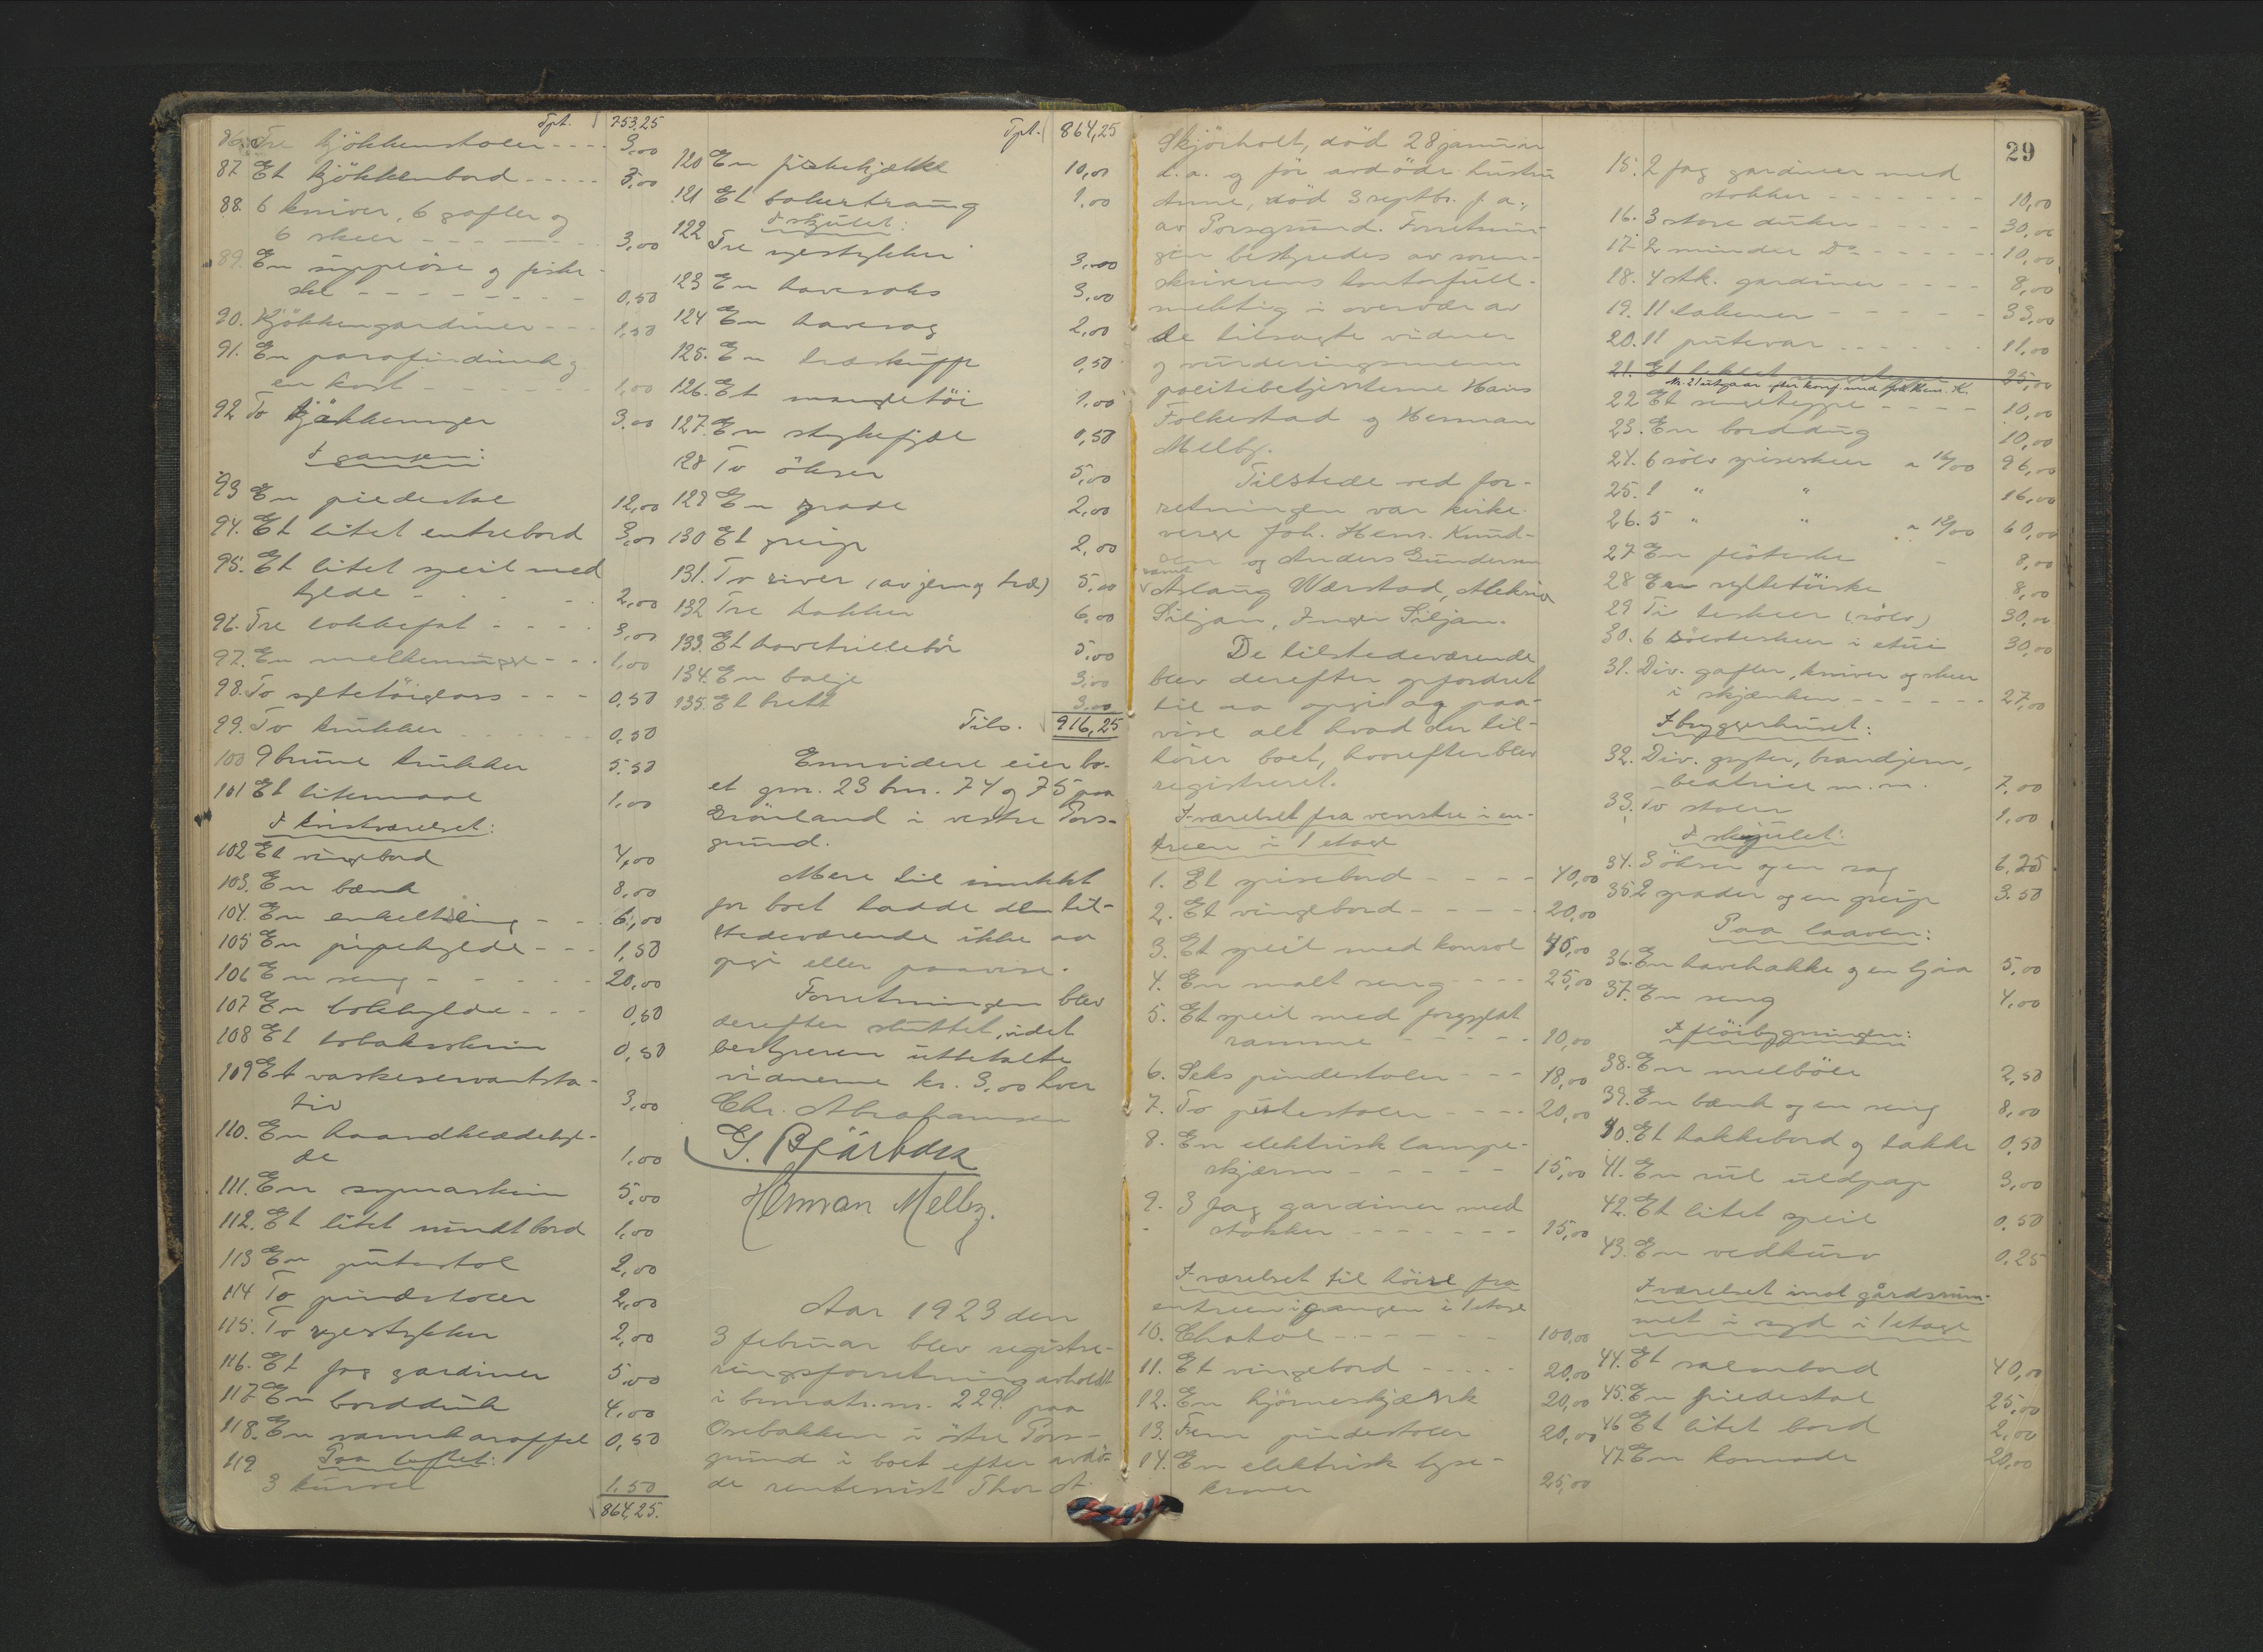 Tpt. 753,25
86. Tre kjökkenstoler - - - - 3,00
87 Et kjökkenbord - - - - - 3,00
88. 6 kniver, 6 gafler og
6 skeer - - - - - - 3,00
89. En suppeöse og fiske-
skе - - - - - - - - - 0,50
90. Kjökkengardiner - - - 1,50
91. En parafindunk og
en kost - - - - - - - 1,00
92 To kjökken 3,00
I gangen:
93 En piedestal 12,00
94. Et litet entrebord 3,00
95. Et litet speil med
hylde - - - - 2,00
96. Tre lokkefat - - - - 3,00
97. En melkemugge - - - 1,00
98. To syltetöiglass - - - 0,50
99. To krukker - - - - - - 0,50
100 9 brune krukker 5.50
101 Et litermaal 1,00
I kvistværelset:
102 Et vingebord 4,00
103. En bænk 8,00
104. En enkeltseng - - 6,00
105 En pipehylde - - - 1,50
106 En seng - - - - - 20,00
107 En bokhylde - - - 0,50
108 Et tobaksskrin 0,50
109 Et vaskeservantsta-
tiv 3,00
110. En haandklædehyl-
de 1,00
111. En symaskin 5,00
112. Et litet rundt bord 1,00
113 En putestol 2,00
114 To pindestoler 2,00
115. To ryestykker 2,00
116. Et fag gardiner 5,00
117 En bordduk 4,00
118. En vannkaraffel 0,50
119 Paa loftet:
3 kurver 1,50
864,25.
Tpt. 864,25
120 En fiskekjække 10,00
121 Et bakertraug 1,00
I skjulet:
122 Tre ryestykker 3,00
123 En havesaks 3,00
124 En havesag 2,00
125. En træskuffe 0,50
126. Et mangletöi 1,00
127. En strykefjæl 0,50
128 To ökser 5,00
129 En spade 2,00
130 Et greip 2,00
131. To river (av jern og træ) 5,00
132 Tre hakker 6,00
133. Et havetrillebör 5,00
134. En balje 3,00
135. Et brett 3,00
Tils. 916,25
Ennvidere eier bo-
et gnr. 23 bnr. 74 og 75 paa
Grönland i vestre Pors-
grund.
Mere til inntekt
for boet hadde den til-
stedeværende ikke aa
opgi eller paavise.
Forretningen blev
derefter sluttet, idet
bestyreren uttbetalte
vidnerne kr. 3,00 hver
Chr. Abrahamsen
G. Bjärbæk
Herman Melby.
Aar 1923 den
3 februar blev registre-
ringsforretning avholdt
i bymatr. nr. 229 paa
Osebakken i östre Pors-
grund i boet efter avdö-
de rentenist Thor A.
Skjörholt, död 28 januar
d.a. og för avdöde hustru
Anne, död 3 septbr. f.a.,
av Porsgrund. Forretnin-
gen bestyredes av soren-
skriverens kontorfull-
mektig i overvær av
de tilsagte vidner
og vurderingsmenn
politibetjenterne Hans
Folkestad og Herman
Melby.
Tilstede ved for-
retningen var kirke-
verge Joh. Henr. Knud-
sen og Anders Gundersen
samt
Aslaug Wærstad, Aleksia
Siljan, Inger Siljan.
De tilstedeværende
blev derefter opfordret
til aa opgi og paa-
vise alt hvad der til-
hörer boet, hvorefter blev
registreret.
I værelset fra venstre i en-
treen i 1 etage
1. Et spisebord - - - - - 40,00
2. Et vingebord - - - - - 20,00
3. Et speil med konsol 40,00
4. En malt seng - - - - 25,00
5. Et speil med forgyldt
ramme - - - - - 10,00
6. Seks pindestoler - - - 18,00
7. To putestoler - - - - 20,00
8. En elektrisk lampe-
skjærm - - - - - 15,00
9. 3 fag gardiner med
stokker - - - - - - - 15,00
I værelset til höire fra
entreen i gangen i 1 etage
10. Chatol - - - - - - 100,00
11. Et vingebord - - - - - 20,00
12. En hjörneskjænk 20,00
13. Fem pindestoler 20,00
14. En elektrisk lyse-
kroner 25,00
29
15. 2 fag gardiner med
stokker - - - - - - - 10,00
16. 3 store duker - - - - - 30,00
17. 2 mindre Do - - - - - - 10,00
18. 4 stk. gardiner - - - - 8,00
19. 11 lakener - - - - - - 33,00
20. 11 putevar - - - - - - 11,00
21. Et teppe 25,00
Nr. 21 utgaar efter konf. med Joh. Henr. K.
22 Et sengeteppe - - - - 10,00
23. En borddug 10,00
24. 6 sölv spiseskeer a 16/00 96,00
25. 1 " " 16,00
26. 5 " " a 12/00 60,00
27 En flöteske - 8,00
28 En syltetöiske 8,00
29 Ti teskeer (sölv) 30,00
30. 6 sölvteskeer i etui 30,00
31. Div. gafler, kniver og skeer
i skjænken - - - - - - 27,00
I bryggerhuset:
32. Div. gryter, brandjern,
beatrice m.m. 7,00
33. To stoler 1,00
I skjulet:
34. 3 ökser og en sag 6,25
35 2 spader og en greip 3.50
Paa laaven:
36. En havehakke og en ljaa 5,00
37. En seng 4,00
I flöibygningen:
38. En melböle 2,50
39. En bænk og en seng 8,00
40. Et hakkebord og hakke 0,50
41. En rul uldpap 3,00
42. Et litet speil 0,50
43. En vedkurv 0,25
I værelset imot gårdsrum-
met i syd i 1 etage
44. Et salonbord 40,00
45. En piedestal 25,00
46 Et litet bord 2,00
47 En komode 20,00